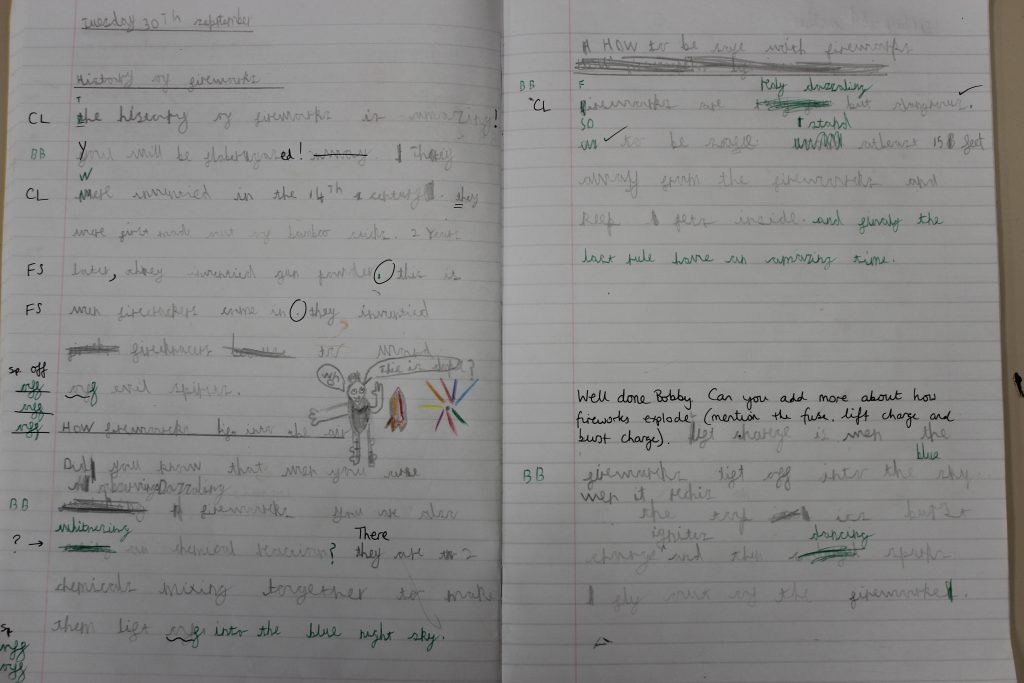 Tuesday 30th september
History of fireworks
CL The hisoarty of fireworks is amazing!
BB You will be flabergasted! They
CL Were invenied in the 14th century. they
were first mad out of bamboo sticks. 2 Years
FS later, they invenied gun powder. this is
FS wen firecrackers came in. they invenied
firecracers
sp off
off off evil spirirs.
off
off
Wh
this is
HOW fireworks
Did you know that wen you
Dazzaleng
BB fireworks you are also
whitnering
? → an chemical reaction? There they are 2
chemicals mixing torgether to make
them lift off into the blue night sky.
sp
off
off
HOW to be safe with fireworks
BB
CL Fireworks are realy dazzaling but dangerus.
SO to be safe stand atleast 15 feet
away from the fireworks and
Keep pets inside. and finaly the
last rule have an amazing time.
Well done Bobby Can you add more about how
fireworks explode (mention the fuse, lift charge and
burst charge). lift charge is wen the
BB fireworks lift off into the blue sky.
wen it rechis
the top its burst
charge ignites and then dancing sparks
fly out of the firework